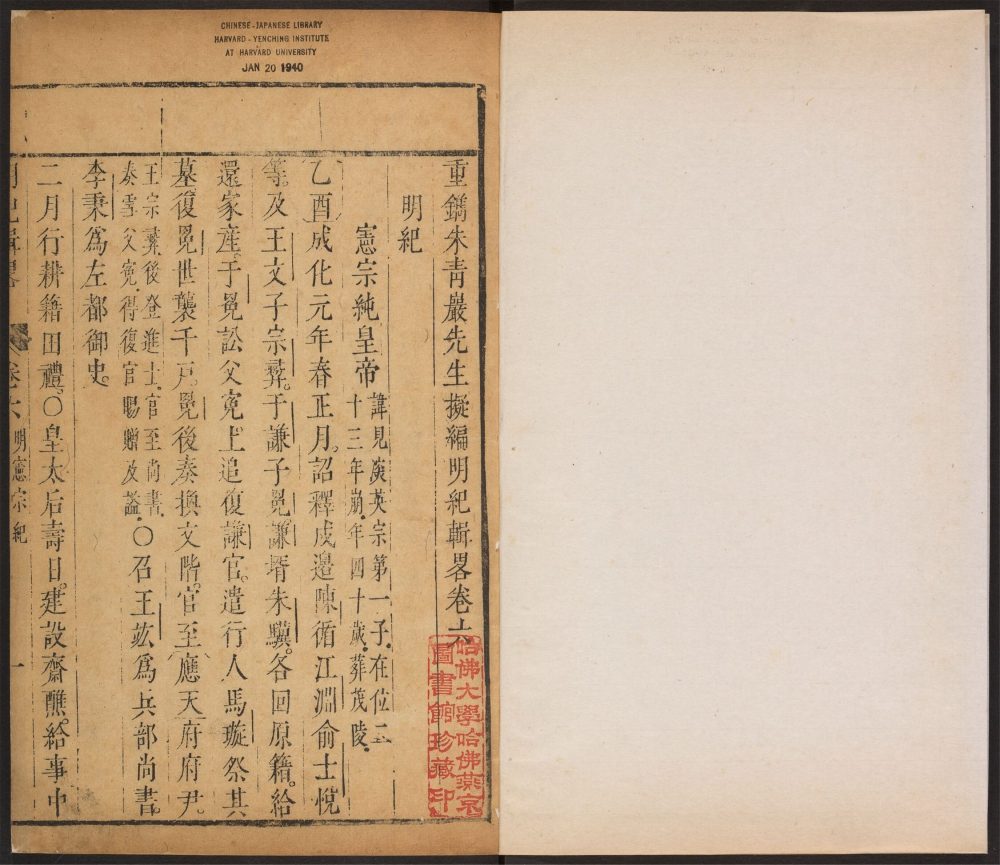 CHINESE-JAPANESE LIBRARY
HARVARD-YENCHING INSTITUTE
AT HARVARD UNIVERSITY
JAN 20 1940
重鐫朱青巖先生擬編明紀輯畧卷六
明紀
憲宗純皇帝
諱見濡英宗第一子.在位二
十三年崩.年四十歲.葬茂陵.
乙酉成化元年春正月.詔釋戍邊陳循江淵俞士悅
等.及王文子宗彞.于謙子冕謙壻朱驥.各回原籍.給
還家産.于冕訟父寃.上追復謙官.遣行人馬璇祭其
墓復冕世襲千戸.冕後奏換文階.官至應天府府尹.
王宗彞.後登進士.官至尚書.
奏雪父寃.得復官賜贈及謚.
〇召王竑爲兵部尚書.
李秉爲左都御史.
二月行耕籍田禮.〇皇太后壽日.建設齋醮.給事中
明紀輯畧
卷六
明憲宗紀
一
哈佛大學哈佛燕京
圖書館珍藏印